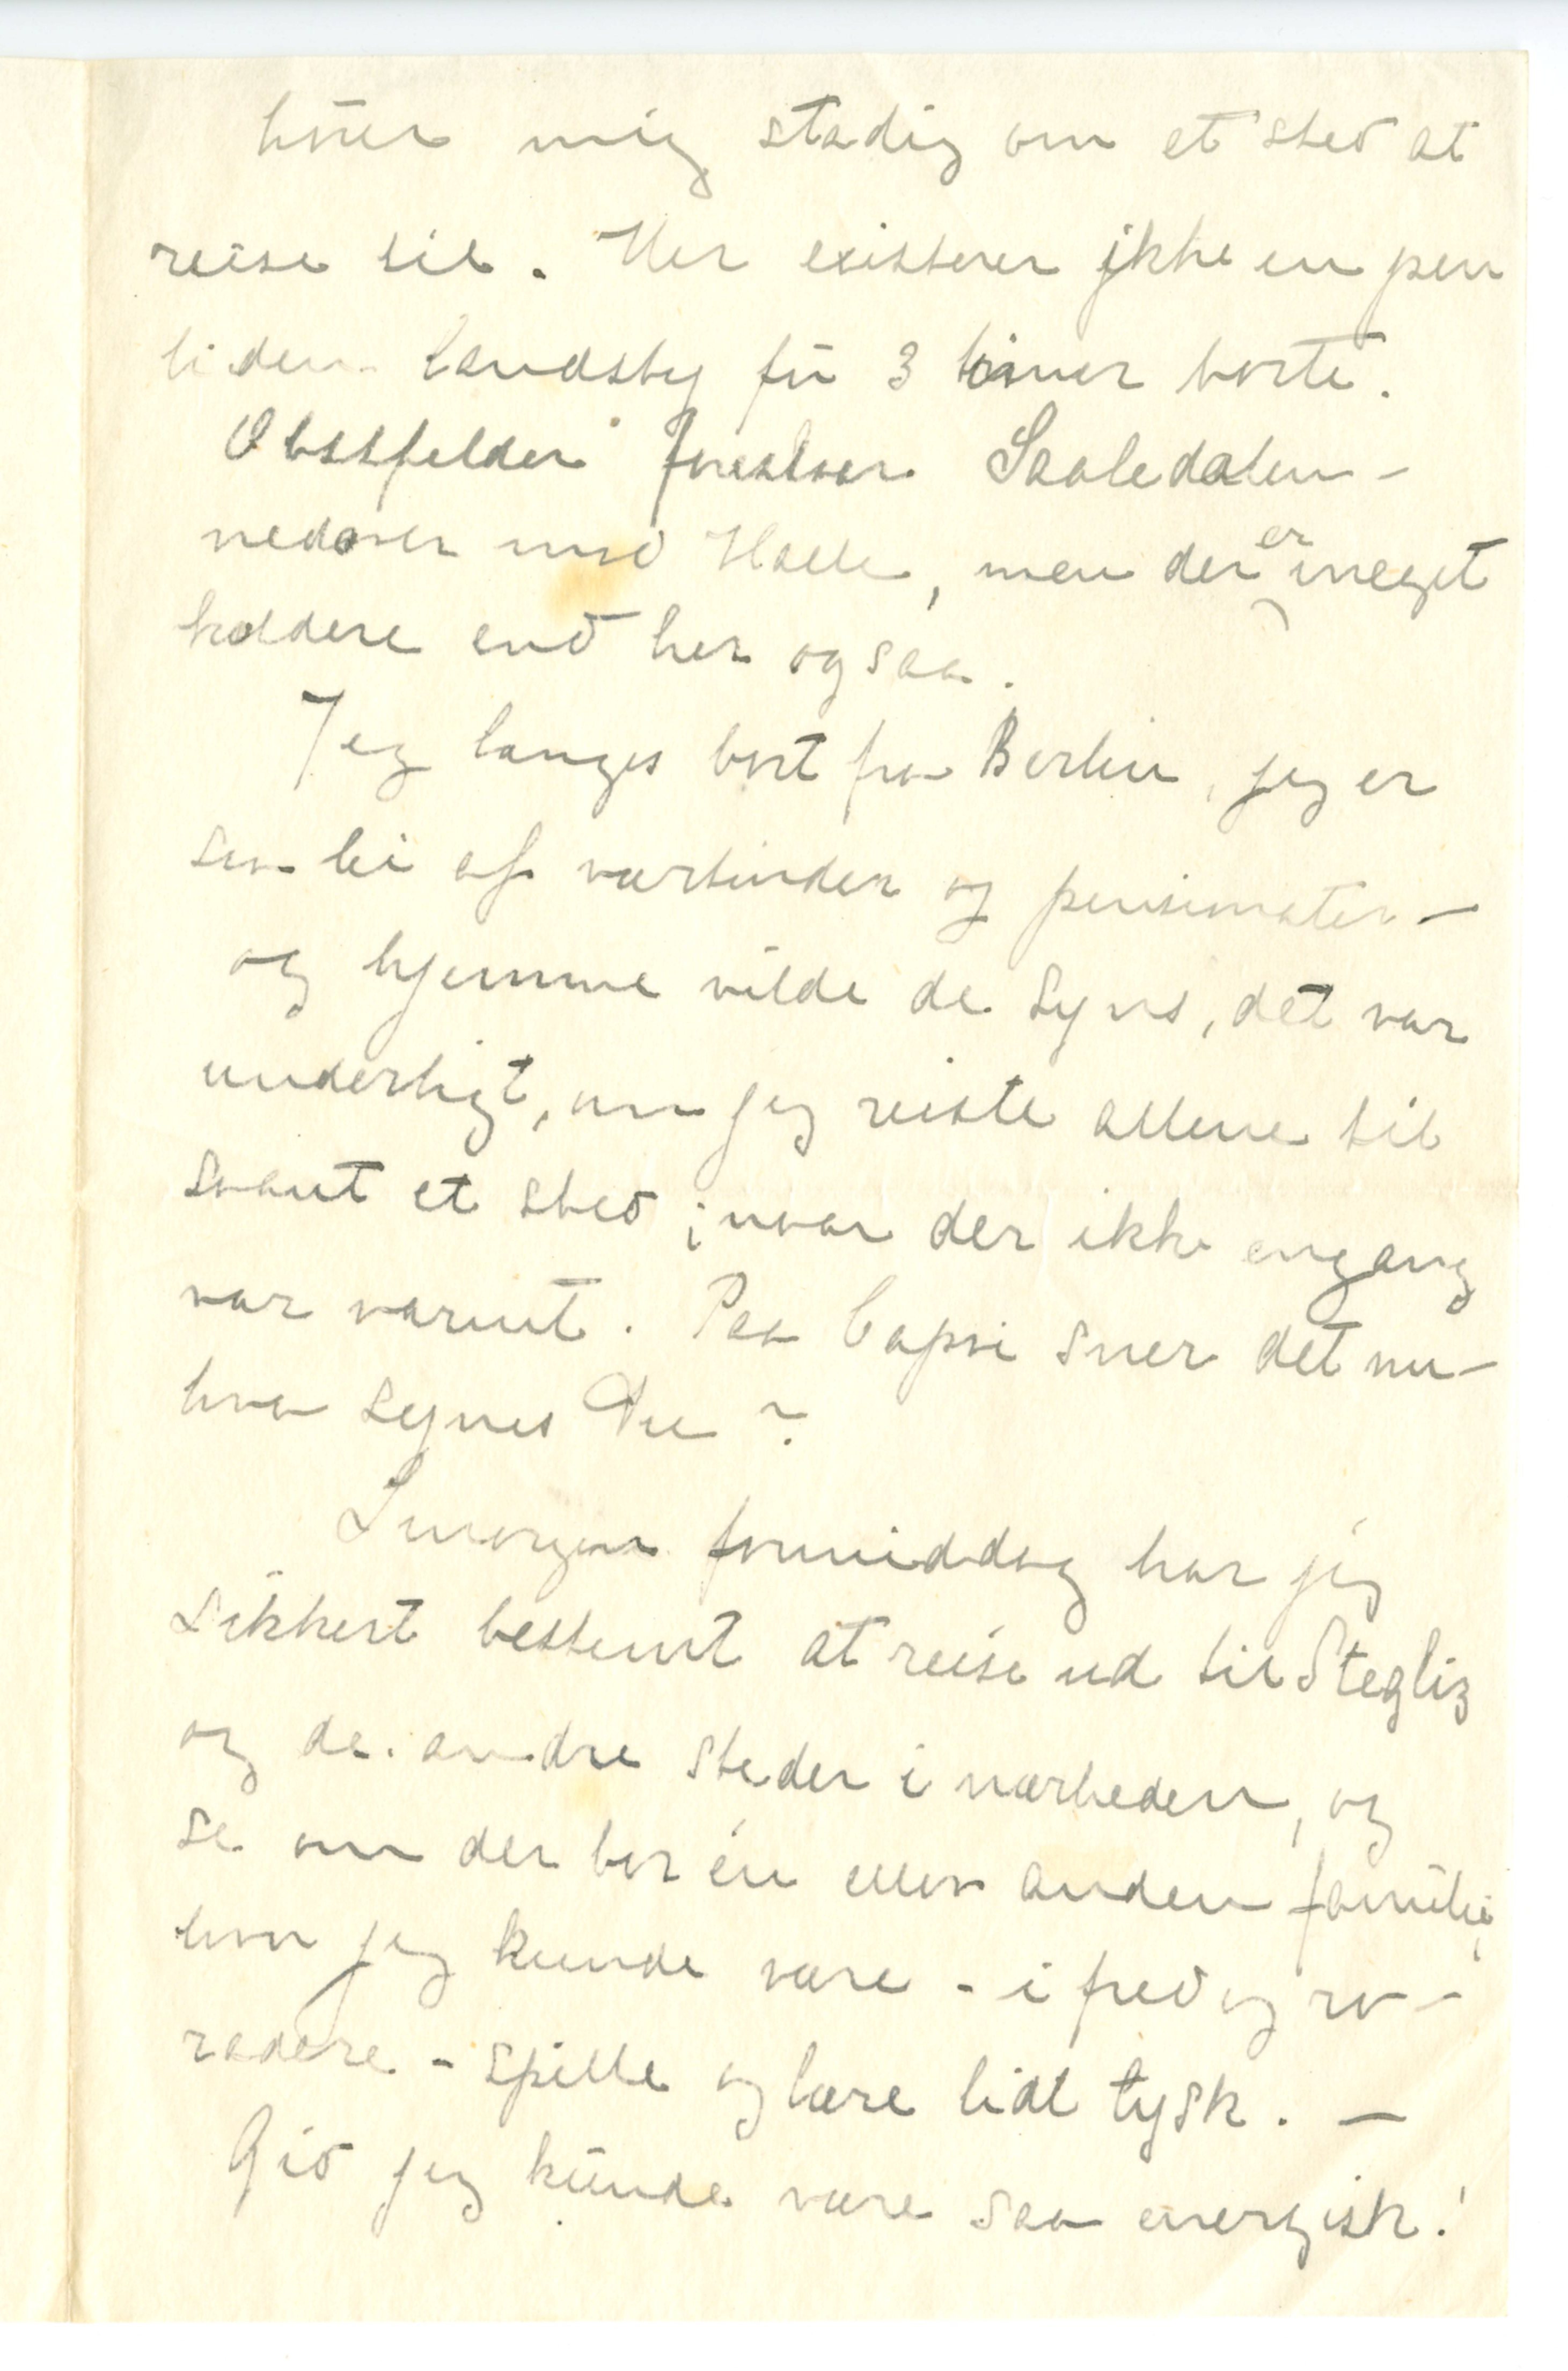 hører mig stadig om et sted at
reise til. Her existerer ikke en pen
liden landsby før 3 timer borte.
Obstfelder foreslaar Saaledalen -
nedover mod Halle, men der er meget
koldere end her ogsaa.
Jeg længes bort fra Berlin, jeg er
saa lei af værtinder og pensionater -
og hjemme vilde de synes, det var
underligt, om jeg reiste allene til
saant et sted; naar der ikke engang
var varmt. Paa Capri sner det nu -
hva synes Du?
Imorgen formiddag har jeg
sikkert bestemt at reise ud til Stegliz
og de andre steder i nærheden, og
se om der bor én eller anden familie,
hvor jeg kunde være - i fred og ro -
radere - spille og lære lidt tysk. —
Gid jeg kunde være saa energisk!